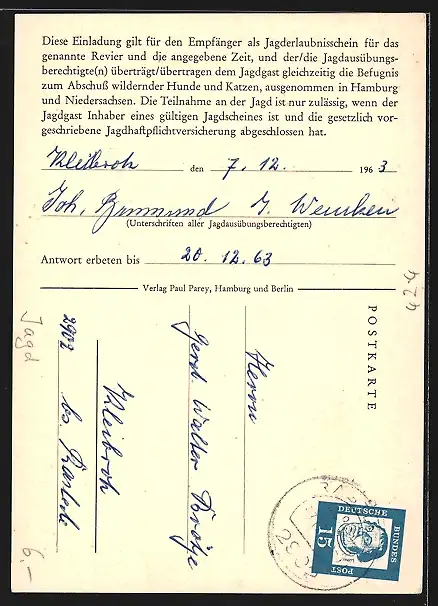 Diese Einladung gilt für den Empfänger als Jagderlaubnisschein für das
genannte Revier und die angegebene Zeit, und der/die Jagdausübungs-
berechtigte(n) überträgt/übertragen dem Jagdgast gleichzeitig die Befugnis
zum Abschuß wildernder Hunde und Katzen, ausgenommen in Hamburg
und Niedersachsen. Die Teilnahme an der Jagd ist nur zulässig, wenn der
Jagdgast Inhaber eines gültigen Jagdscheines ist und die gesetzlich vor-
geschriebene Jagdhaftpflichtversicherung abgeschlossen hat.
Kleibrok den 7. 12. 1963
Joh. G. Wemken
(Unterschriften aller Jagdausübungsberechtigten)
Antwort erbeten bis 20. 12. 63
Verlag Paul Parey, Hamburg und Berlin
POSTKARTE
Herrn
Gerd. Walter
Kleibrok
2902 bs. Rastede
DEUTSCHE
BUNDES
POST
15
Jagd
6,-
424